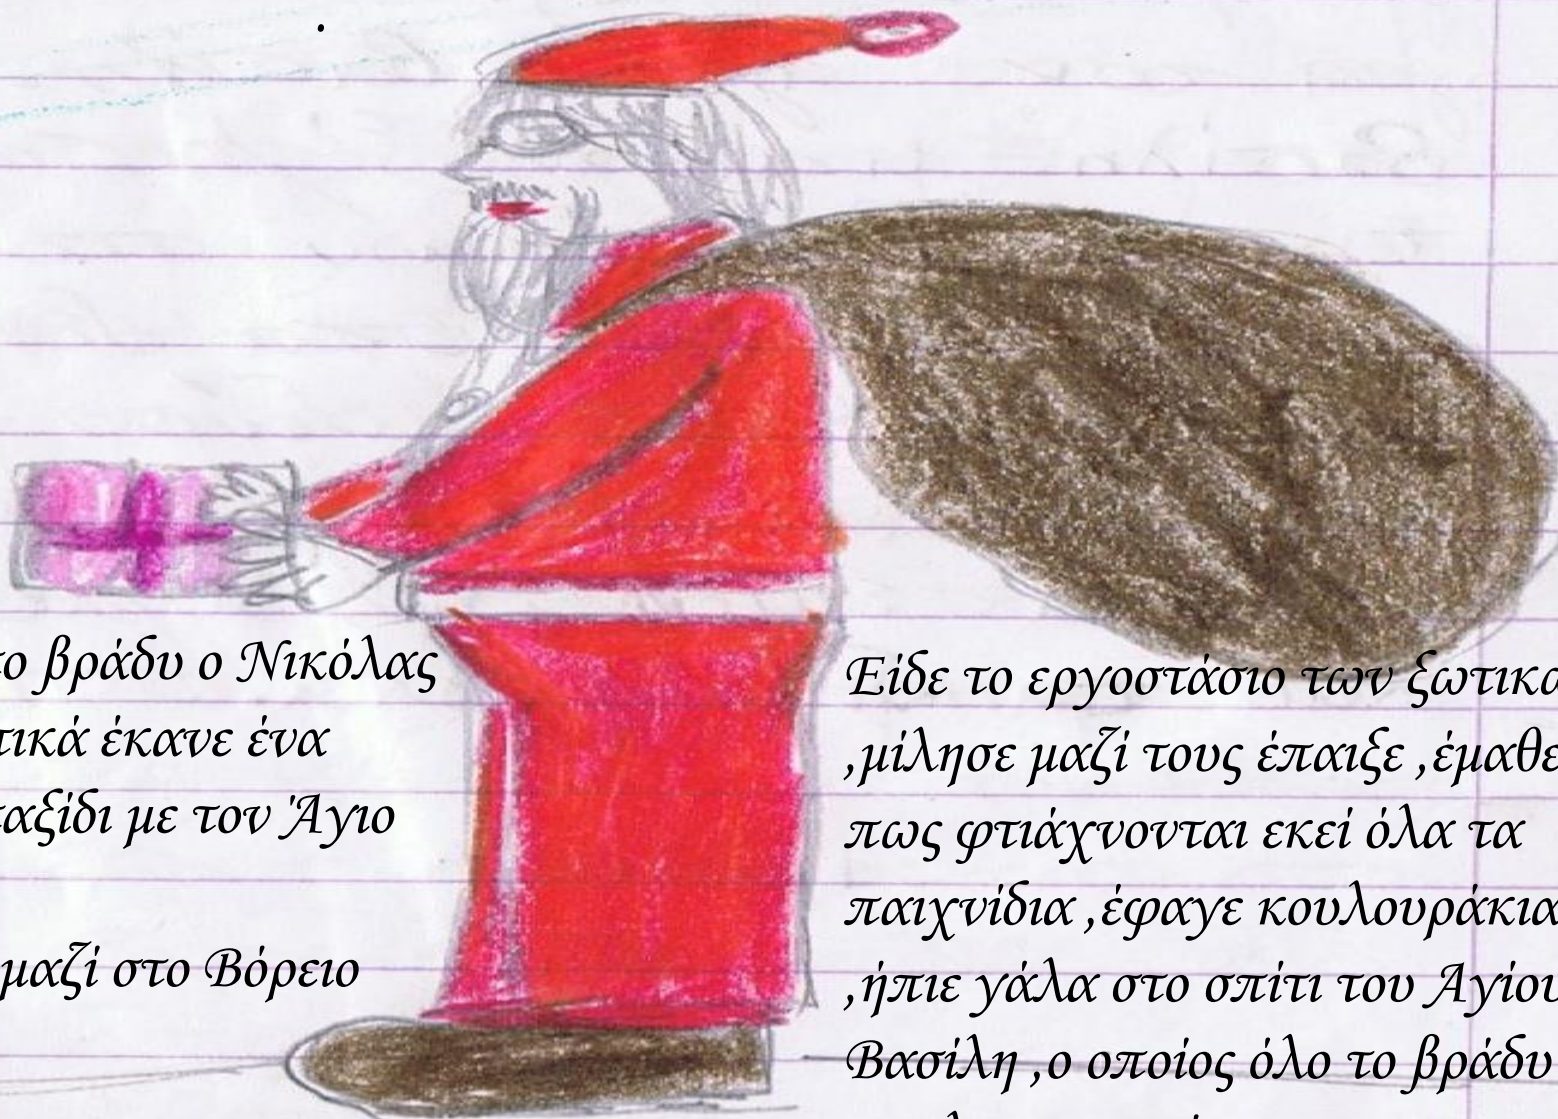 το βράδυ ο Νικόλας
τικά έκανε ένα
ταξίδι με τον Άγιο
μαζί στο Βόρειο
Είδε το εργοστάσιο των
,μίλησε μαζί τους έπαιξε ,έμαθε
πως φτιάχνονται εκεί όλα τα
παιχνίδια ,έφαγε κουλουράκια
,ήπιε γάλα στο σπίτι του Αγίου
Βασίλη ,ο οποίος όλο το βράδυ